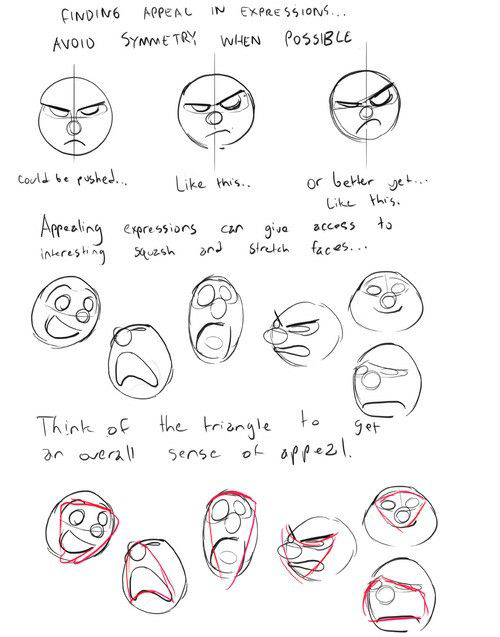 FINDING APPEAL IN EXPRESSIONS...
AVOID SYMMETRY WHEN POSSIBLE
could be pushed...
Like this..
or better yet...
Like this.
Appealing expressions can give access to
interesting squash and stretch faces...
Think of the triangle to get
an overall sense of appeal.